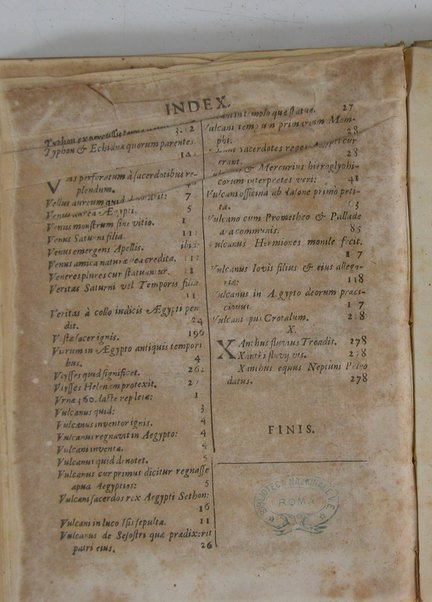 INDEX.
Typhon & Echidna quorum parentes.
Vas perforatum à sacerdotibus re-
plendum. 4
Vellus aureum quid 7
Venus aurea Ægypti. 5
Venus monstrum sine vitio. 1
Venus Saturni filia. 11
Venus emergens Apellis. ibid
Venus amica naturæ ea credita. 11
Veneres plures cur statuantur. 1
Veritas Saturni vel Temporis filia
11
Veritas à collo iudicis Ægypti pen
dit. 24
Vesta sacer ignis. 196
Vurum in Ægypto antiquis tempori
bus. 4
Vlysses quid significet. 262
Vlysses Helenam protexit. 27
Vrna 360. lacte repleta: 1
Vulcanus quid: 3
Vulcanus inventor ignis. 4
Vulcanus regnavit in Aegypto: 4
Vulcani inventa. 4
Vulcanus quid denotet. 5
Vulcanus cur primus dicitur regnasse
apud Aegyptios: 5
Vulcani sacerdos rex Aegypti Sethon:
16
Vulcani in luco Isis sepulta. 11
Vulcanus de Sesostri quæ prædixerit
patri eius. 26
in templo quæ statuæ. 27
Vulcani templum primarium Mem-
phi. 28
sacerdotes reges Aegypti cur
erant. 28
& Mercurius hieroglyphi-
corum interpretes veri; 41
Vulcani officina ab Iasone primo peti-
ta. 3
Vulcano cum Prometheo & Pallade
ara communis. 85
Vulcanus Hermiones monile fecit.
17
Vulcanus Iovis filius & eius allego-
ria: 118
Vulcanus in Aegypto deorum præci-
117
Vulcani opus Crotalum. 218
X.
XAnthus fluvius Troadis. 278
Xanthi fluvij vis. 278
Xanthus equus Neptuni Peleo
datus. 278
FINIS.
ROMA